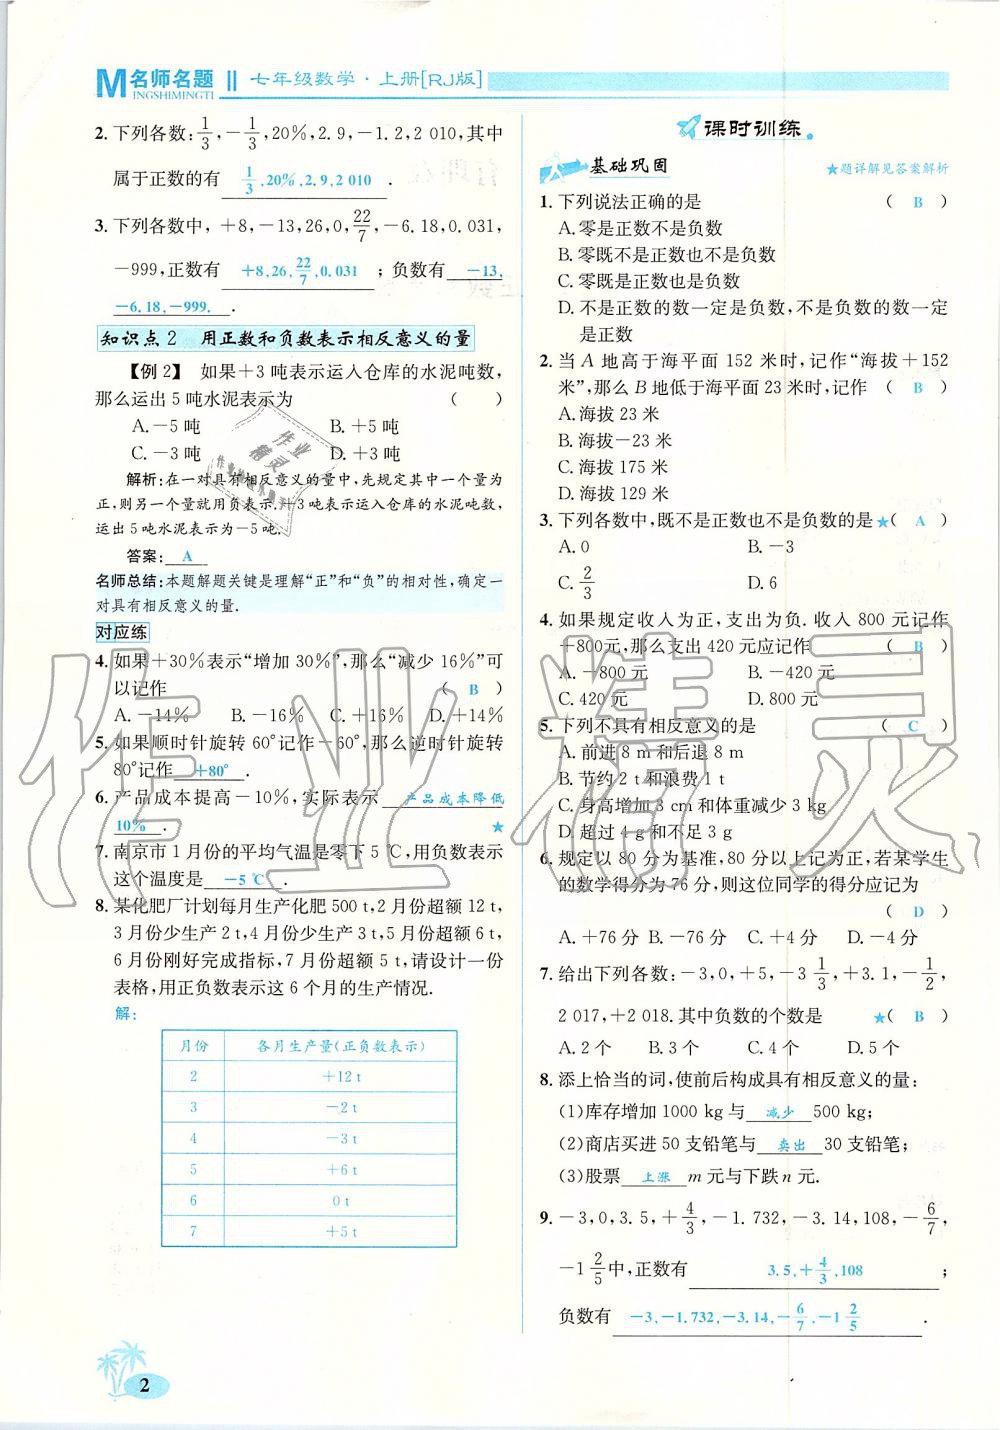 名师名题 MINGSHIMINGTI 七年级数学·上册[RJ版]
2. 下列各数:1/3,-1/3,20%,2.9,-1.2,2 010,其中
属于正数的有 1/3,20%,2.9,2 010 .
3. 下列各数中,+8,-13,26,0,22/7,-6.18,0.031,
-999,正数有 +8,26,22/7,0.031 ;负数有 -13,
-6.18,-999. .
知识点2 用正数和负数表示相反意义的量
【例2】 如果+3吨表示运入仓库的水泥吨数,
那么运出5吨水泥表示为 ( )
A.-5吨 B.+5吨
C.-3吨 D.+3吨
解析:在一对具有相反意义的量中,先规定其中一个量为
正,则另一个量就用负表示.+3吨表示运入仓库的水泥吨数,
运出5吨水泥表示为-5吨.
答案: A
名师总结:本题解题关键是理解“正”和“负”的相对性,确定一
对具有相反意义的量.
对应练
4. 如果+30%表示“增加30%”,那么“减少16%”可
以记作 ( B )
A.-14% B.-16% C.+16% D.+14%
5. 如果顺时针旋转60°记作-60°,那么逆时针旋转
80°记作 +80° .
6. 产品成本提高-10%,实际表示 产品成本降低
10% . ★
7. 南京市1月份的平均气温是零下5℃,用负数表示
这个温度是 -5℃ .
8. 某化肥厂计划每月生产化肥500 t,2月份超额12 t,
3月份少生产2 t,4月份少生产3 t,5月份超额6 t,
6月份刚好完成指标,7月份超额5 t,请设计一份
表格,用正负数表示这6个月的生产情况.
解:
月份 各月生产量(正负数表示)
2 +12 t
3 -2 t
4 -3 t
5 +6 t
6 0 t
7 +5 t
2
课时训练
基础巩固 ★题详解见答案解析
1. 下列说法正确的是 ( B )
A. 零是正数不是负数
B. 零既不是正数也不是负数
C. 零既是正数也是负数
D. 不是正数的数一定是负数,不是负数的数一定
是正数
2. 当A地高于海平面152米时,记作“海拔+152
米”,那么B地低于海平面23米时,记作 ( B )
A. 海拔23米
B. 海拔-23米
C. 海拔175米
D. 海拔129米
3. 下列各数中,既不是正数也不是负数的是 ★( A )
A. 0 B. -3
C. 2/3 D. 6
4. 如果规定收入为正,支出为负.收入800元记作
+800元,那么支出420元应记作 ( B )
A. -800元 B. -420元
C. 420元 D. 800元
5. 下列不具有相反意义的是 ( C )
A. 前进8 m和后退8 m
B. 节约2 t和浪费1 t
C. 身高增加3 cm和体重减少3 kg
D. 超过4 g和不足3 g
6. 规定以80分为基准,80分以上记为正,若某学生
的数学得分为76分,则这位同学的得分应记为
( D )
A. +76分 B. -76分 C. +4分 D. -4分
7. 给出下列各数:-3,0,+5,-3 1/3,+3.1,-1/2,
2 017,+2 018.其中负数的个数是 ★( B )
A. 2个 B. 3个 C. 4个 D. 5个
8. 添上恰当的词,使前后构成具有相反意义的量:
(1)库存增加1000 kg与 减少 500 kg;
(2)商店买进50支铅笔与 卖出 30支铅笔;
(3)股票 上涨 m元与下跌n元.
9. -3,0,3.5,+4/3,-1.732,-3.14,108,-6/7,
-1 2/5中,正数有 3.5,+4/3,108 ;
负数有 -3,-1.732,-3.14,-6/7,-1 2/5 .
作业精灵